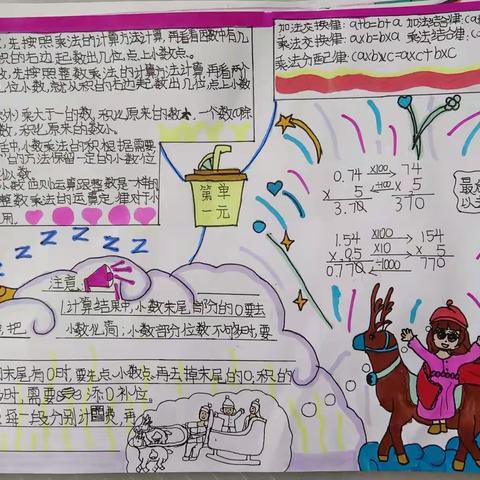 先按照整数乘法的计算方法计算,再看因数中有几
积的右边起数出几位,点上小数点。
数,先按照整数乘法的计算方法计算,再看两个
几位小数,就从积的右边起数出几位,点上小数
外)乘大于一的数,积比原来的数大。一个数(0除
数,积比原来的数小。
活中,小数乘法的积根据需要
的方法保留一定的小数位
以数
小数四则运算跟整数是一样的
整数乘法的运算定律对于小
用。
加法交换律:a+b=b+a 加法结合律:(a
乘法交换律:axb=bxa 乘法结合律:(a
乘法分配律:(axb)xc=axc+bxc
第一单元
0.74 x100 74
x 5 ÷100 x 5
3.70 370
1.54 x100 154
x 0.5 x10 x 5
0.770 ÷1000 770
最
以
Z Z Z Z Z Z
注意
1.计算结果中,小数末尾部分的0要去
把 小数化简;小数部分位数不够时,要
末尾有0时,要先点小数点,再去掉末尾的0,积的
时,需要 添0补位。
每一段分别计 费,再